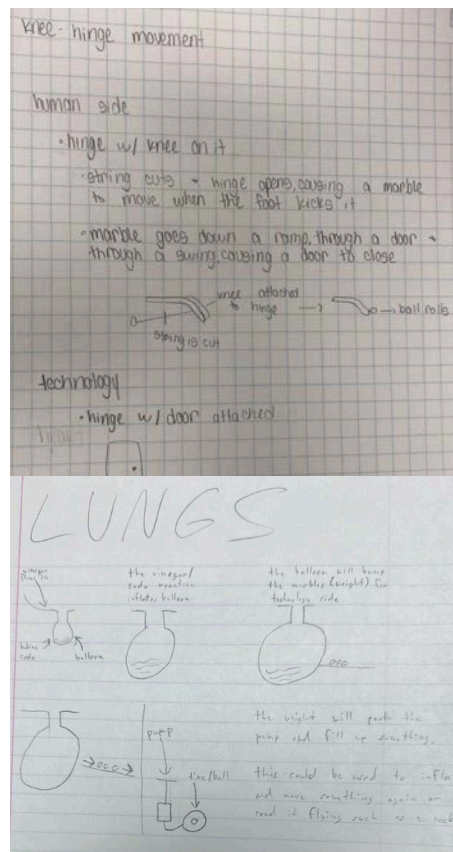 knee - hinge movement
human side
• hinge w/ knee on it
• string cuts + hinge opens, causing a marble
to move when the foot kicks it
• marble goes down a ramp, through a door +
through a swing, causing a door to close
knee attached
to hinge
ball rolls
string is cut
technology
• hinge w/ door attached
LUNGS
vinegar
baking
soda
balloon
the vinegar/
soda reaction
inflates balloon
the balloon will bump
the marbles (weight) for
technology side
pump
tire/ball
the weight will push the
pump and fill up something.
this could be used to
and move something again or
send it flying such as a